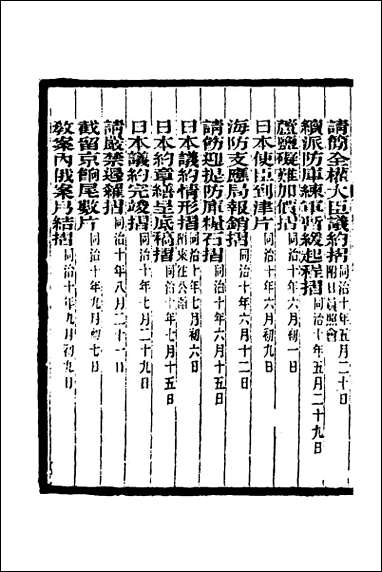 請飭全權大臣議約摺同治十年五月二十日附日員照會
續派防庫練軍暫緩起程摺同治十年五月二十九日
蘆鹽礙難加價摺同治十年六月初一日
日本使臣到津片同治十年六月初九日
海防支應局報銷摺同治十年六月十二日
請飭迎提防庫糧石摺同治十年六月十五日
日本議約情形摺同治十年七月初六日附來往公牘
日本約章繕呈底稿摺同治十年七月十五日
日本議約完竣摺同治十年七月二十九日
請嚴禁邊糴摺同治十年八月二十一日
截留京餉尾數片同治十年九月初七日
教案內俄案片結摺同治十年九月初九日